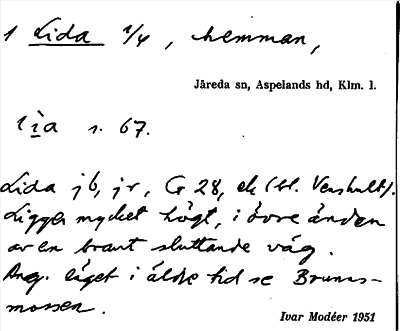 1 Lida 1/4, hemman,
Järeda sn, Aspelands hd, Klm. l.
lìa s. 67.
Lida jb, jr, G 28, ek (bl. Venshult).
Ligger mycket högt, i övre änden
av en brant sluttande väg.
Ang. läget i äldre tid se Bruns-
mossen.
Ivar Modéer 1951